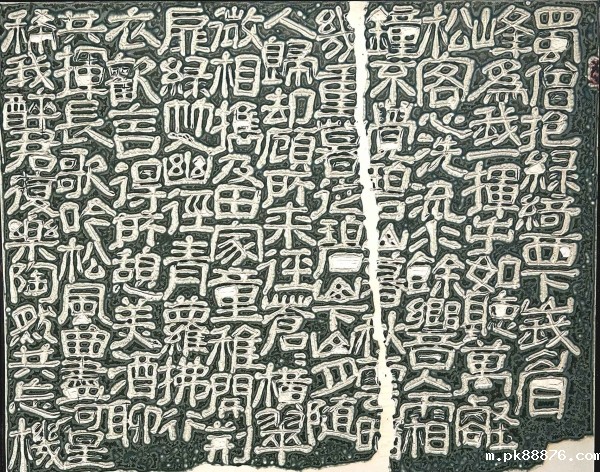 蜀僧抱綠綺西下峨眉
峰為我一揮手如聽萬壑
松客心洗流水餘響入霜
鐘不覺碧山暮秋雲暗
幾重暮從碧山下山月隨
人歸却顧所來徑蒼〻橫翠
微相攜及田家童稚開荊
扉綠竹入幽徑青蘿拂行
衣歡言得所憩美酒聊
共揮長歌吟松風曲盡河星
稀我醉君復樂陶然共忘機
m.pk88876.com